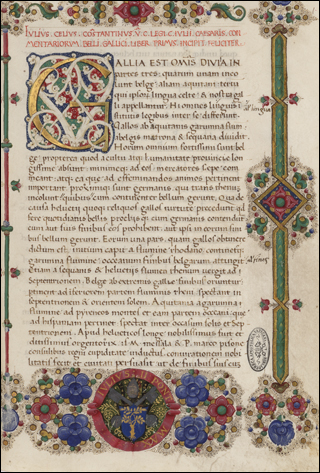 IVLIVS CELIVS CONSTANTINVS V C LEGI C IVLII CAESARIS COM
MENTARIORVM BELLI GALLICI LIBER PRIMVS INCIPIT FELICITER
GALLIA EST OMIS DIVISA IN
partes tres: quarum unam inco
lunt belgę: aliam aquitani: tertiā
qui ipsorū lingua celtę & nostra gal
li appellantur. Hi omnes lingua
Gallos ab aquitanis garunna flum
abelgis matrona & sequana diuidit.
Horum omnium fortissimi sunt bel
gę: propterea quod a cultu atq; humanitate prouincię lon
gissime absunt minimeq; ad eos mercatores sępe com
meant: atq; ea quę ad effeminandos animos pertinent
important. proximiq; sunt germanis qui trans rhenum
incolunt: quibuscum continenter bellum gerunt. Qua de
causa heluetii quoq; reliquos gallos uirtute precedunt: q
fere quotidianis bellis proeliis q; cum germanis contendūt
cum aut suis finibus eos prohibent: aut ipsi in eorum fini
bus bellum gerunt. Eorum una pars quam gallos obtinere
dictum est: initium capit a flumine rhodano: continetq;
garunna flumine: occeano: finibus belgarum: attingit
etiam a sequanis & heluetiis flumen rhenum: uergit ad
septentrionem. Belgę ab extremis gallię finibus oriuntur
pertinent ad inferiorem partem fluminis rheni: spectant in
septentrionem & orientem solem. Aquitania a garunna
flumine ad pyreneos montes et eam partem occeani quę
ad hispaniam pertinet spectat inter occasum solis et sep
tentrionem. Apud heluetios longe nobilissimus fuit et
ditissimus orgentorix. is M. messala & P. marco pisone
consulibus regni cupiditate inductus coniurationem nobi
litatis fecit et ciuitati persuasit ut de finibus suis cum